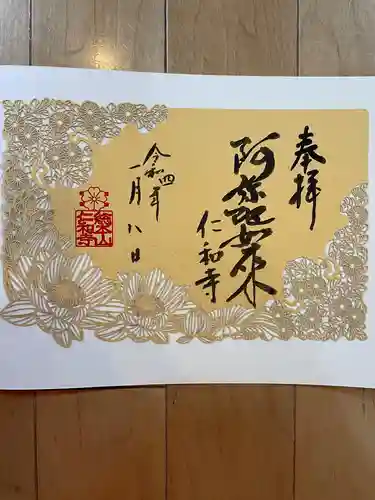 奉拝
阿弥陀如来
仁和寺
令和四年
一月八日
仁和寺